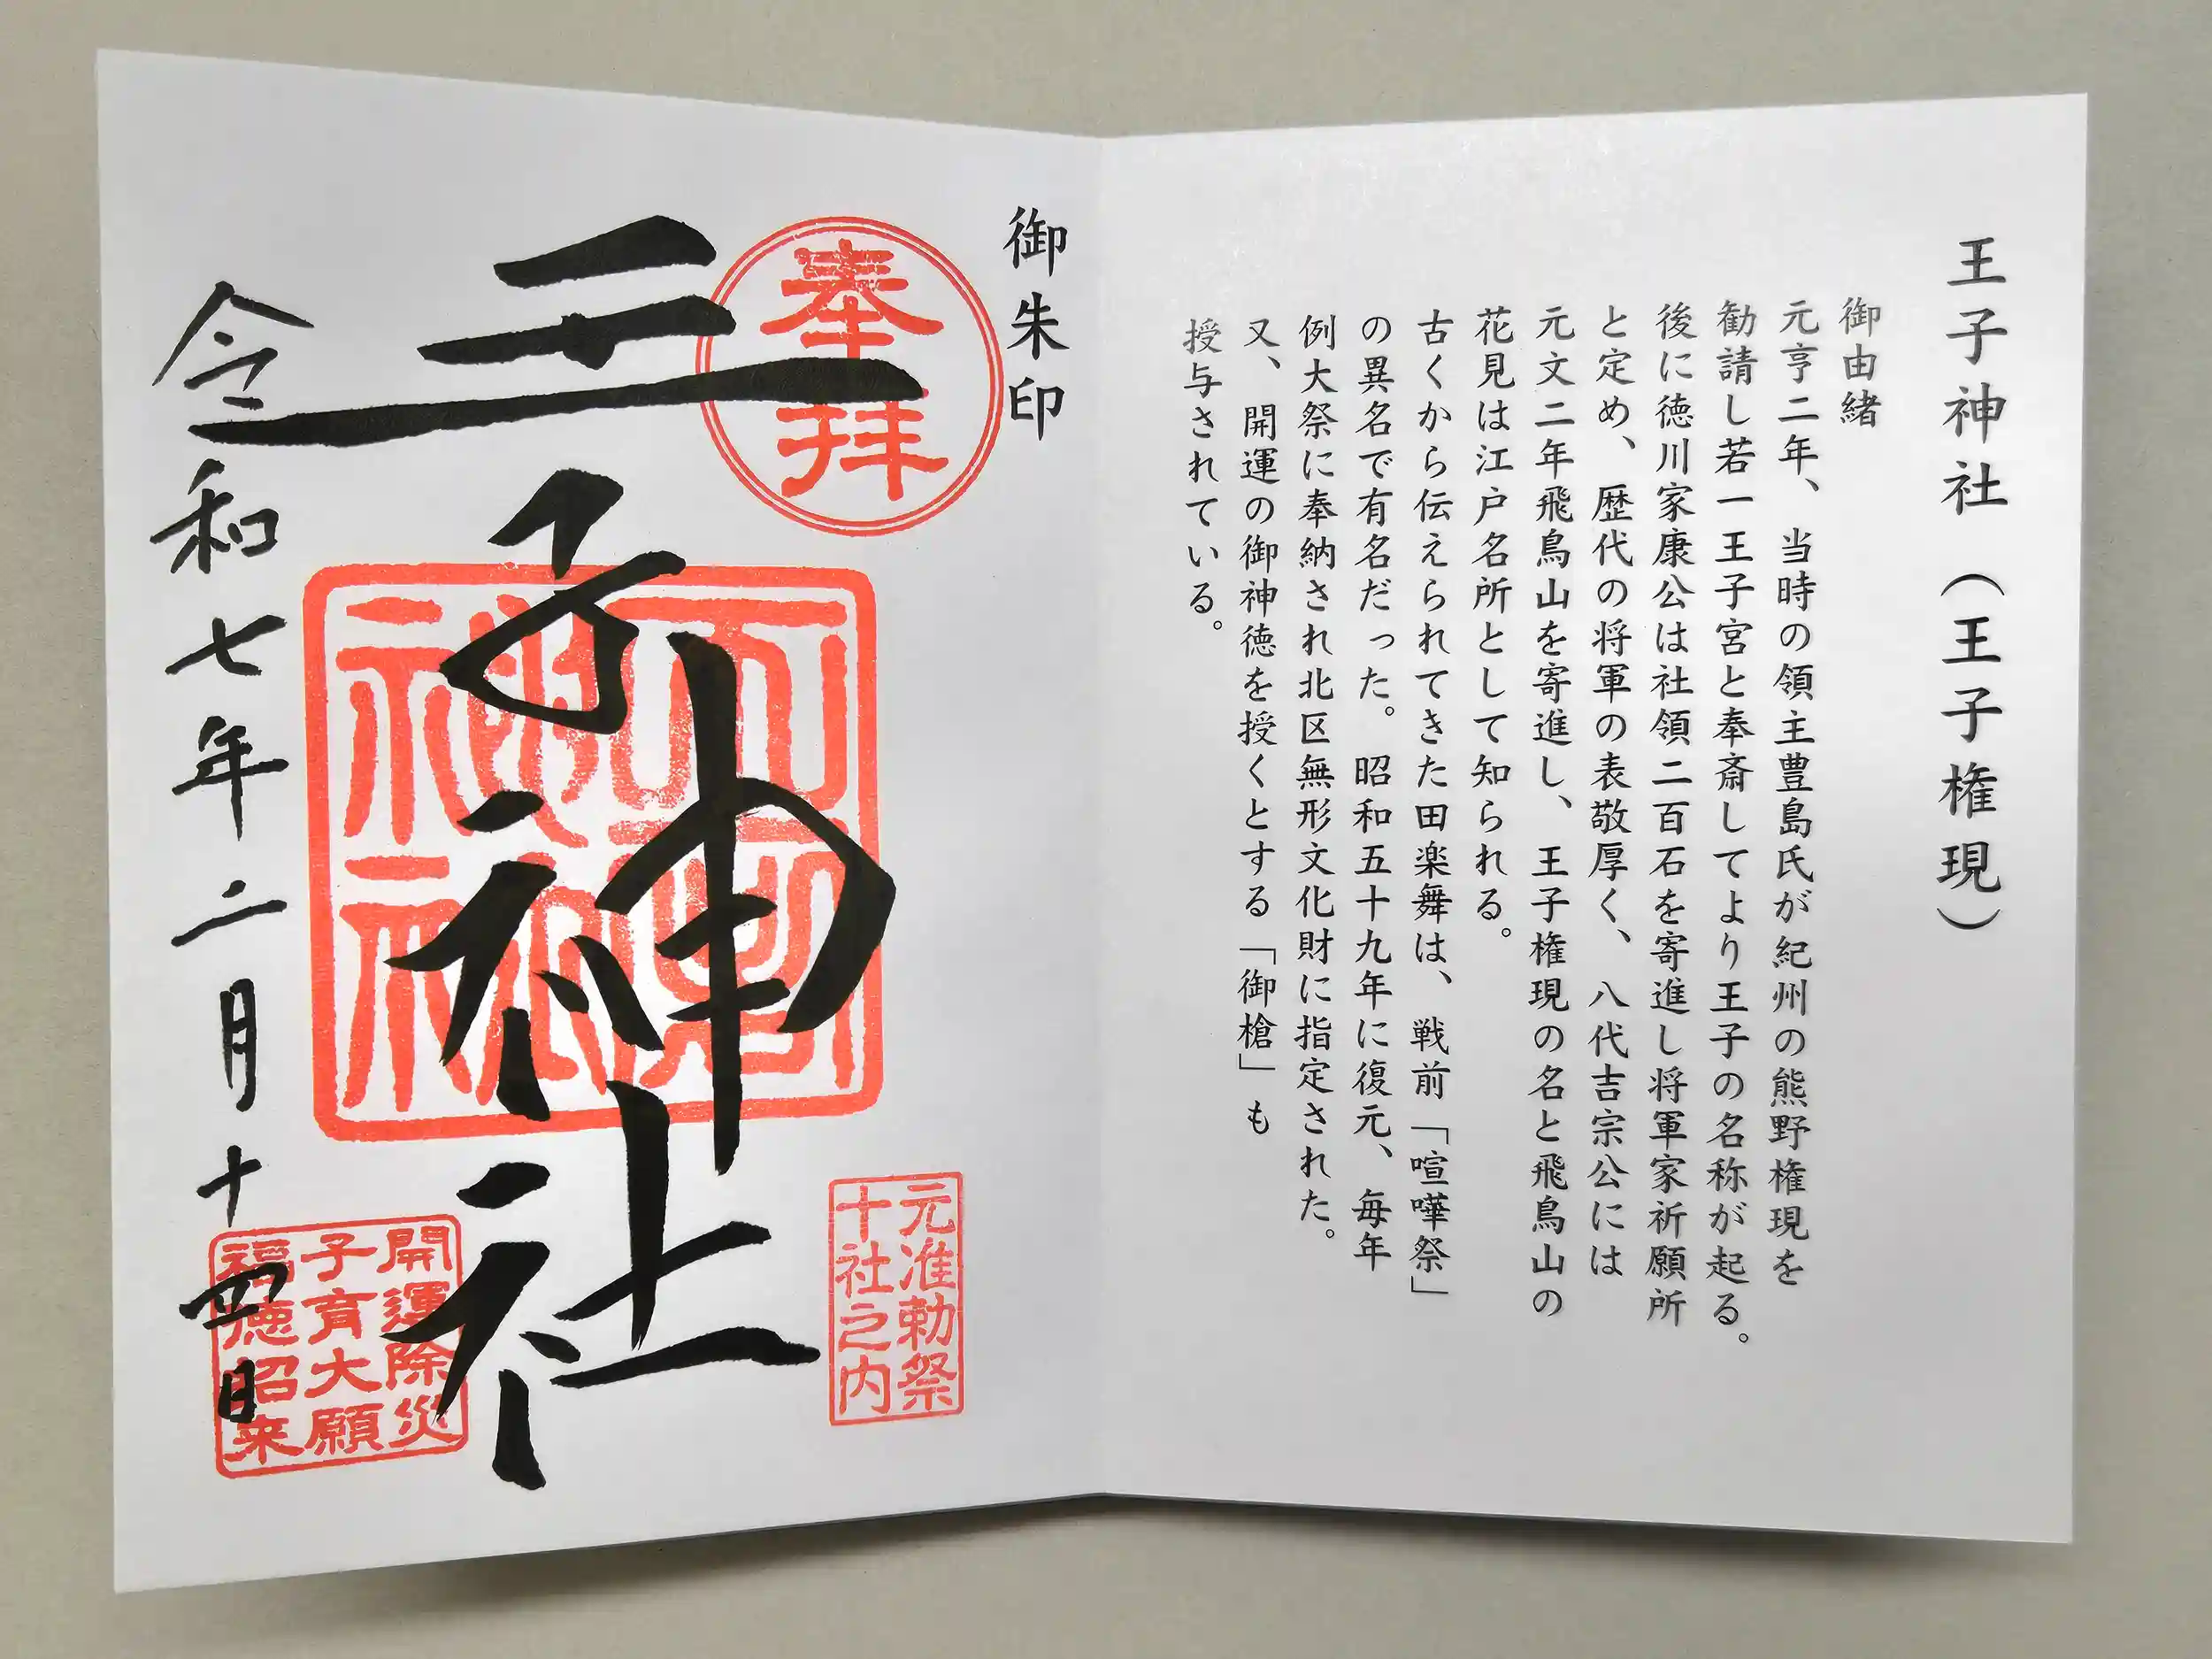 王子神社（王子権現）
御由緒
元亨二年、当時の領主豊島氏が紀州の熊野権現を
勧請し若一王子宮と奉斎してより王子の名称が起る。
後に徳川家康公は社領二百石を寄進し将軍家祈願所
と定め、歴代の将軍の表敬厚く、八代吉宗公には
元文二年飛鳥山を寄進し、王子権現の名と飛鳥山の
花見は江戸名所として知られる。
古くから伝えられてきた田楽舞は、戦前「喧嘩祭」
の異名で有名だった。昭和五十九年に復元、毎年
例大祭に奉納され北区無形文化財に指定された。
又、開運の御神徳を授くとする「御槍」も
授与されている。
御朱印
奉拝
元准勅祭
十社之内
王子神社
王子
神社
開運除災
子育大願
福徳昭来
令和七年二月十四日